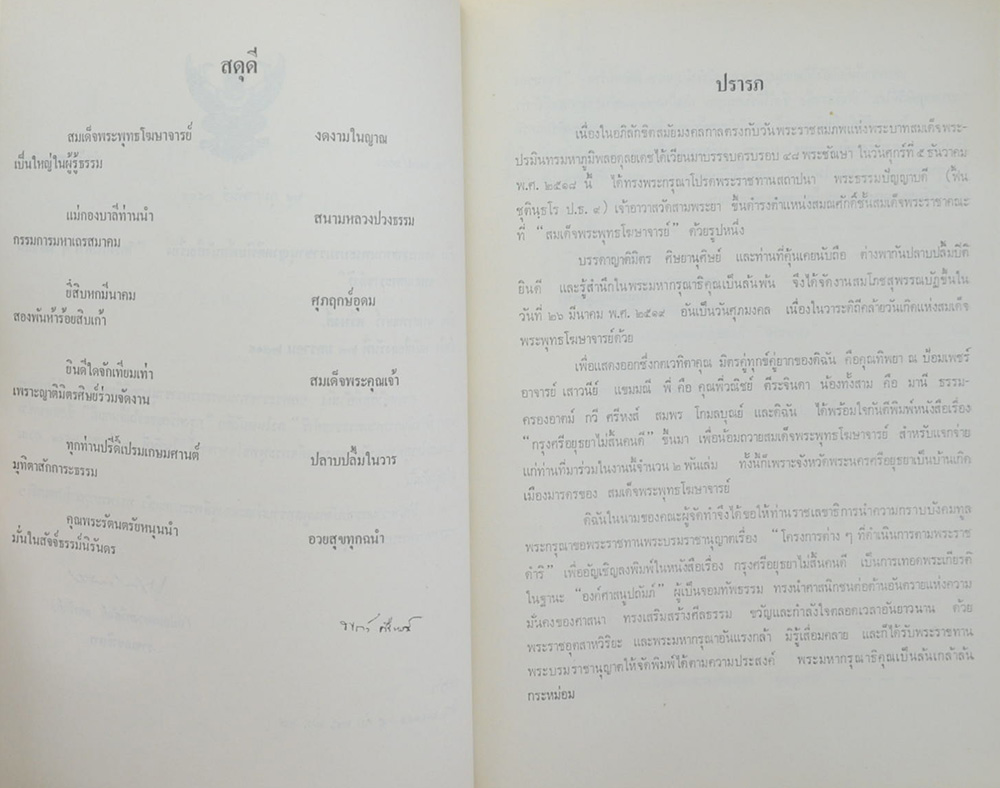 สดุดี
สมเด็จพระพุทธโฆษาจารย์ งดงามในญาณ
เป็นใหญ่ในผู้รู้ธรรม
แม่กองบาลีท่านนำ สนามหลวงปวงธรรม
กรรมการมหาเถรสมาคม
ยี่สิบหกมีนาคม ศุภฤกษ์อุดม
สองพันห้าร้อยสิบเก้า
ยินดีใดจักเทียมเท่า สมเด็จพระคุณเจ้า
เพราะญาติมิตรศิษย์ร่วมจัดงาน
ทุกท่านปรีดิ์เปรมเกษมศานติ์ ปลาบปลื้มในวาร
มุทิตาสักการะธรรม
คุณพระรัตนตรัยหนุนนำ อวยสุขทุกฉนำ
มั่นในสัจจ์ธรรมนิรันดร
ปรารภ
เนื่องในอภิลักขิตสมัยมงคลกาลตรงกับวันพระราชสมภพแห่งพระบาทสมเด็จพระ-
ปรมินทรมหาภูมิพลอดุลยเดชได้เวียนมาบรรจบครบรอบ ๔๘ พระชันษา ในวันศุกร์ที่ ๕ ธันวาคม
พ.ศ. ๒๕๑๘ นี้ ได้ทรงพระกรุณาโปรดพระราชทานสถาปนา พระธรรมปัญญาบดี (ฟื้น
ชุตินฺธโร ป.ธ. ๙) เจ้าอาวาสวัดสามพระยา ขึ้นดำรงตำแหน่งสมณศักดิ์ชั้นสมเด็จพระราชาคณะ
ที่ “สมเด็จพระพุทธโฆษาจารย์” ด้วยรูปหนึ่ง
บรรดาญาติมิตร ศิษยานุศิษย์ และท่านที่คุ้นเคยนับถือ ต่างพากันปลาบปลื้มปีติ
ยินดี และรู้สำนึกในพระมหากรุณาธิคุณเป็นล้นพ้น จึงได้จัดงานสมโภชสุพรรณบัฏขึ้นใน
วันที่ ๒๖ มีนาคม พ.ศ. ๒๕๑๙ อันเป็นวันศุภมงคล เนื่องในวาระดิถีคล้ายวันเกิดแห่งสมเด็จ
พระพุทธโฆษาจารย์ด้วย
เพื่อแสดงออกซึ่งกตเวทิตาคุณ มิตรคู่ทุกข์คู่ยากของดิฉัน คือคุณทิพยา ณ ป้อมเพชร์
อาจารย์ เสาวนีย์ แขมมณี พี่ คือ คุณพี่วณิชย์ ตีระจินดา น้องทั้งสาม คือ มานี ธรรม-
ครองอาตม์ กวี ศรีหงส์ สมพร โกมลบุณย์ และดิฉัน ได้พร้อมใจกันตีพิมพ์หนังสือเรื่อง
“กรุงศรีอยุธยาไม่สิ้นคนดี” ขึ้นมา เพื่อน้อมถวายสมเด็จพระพุทธโฆษาจารย์ สำหรับแจกจ่าย
แก่ท่านที่มาร่วมในงานนี้จำนวน ๒ พันเล่ม ทั้งนี้ก็เพราะจังหวัดพระนครศรีอยุธยาเป็นบ้านเกิด
เมืองมารดรของ สมเด็จพระพุทธโฆษาจารย์
ดิฉันในนามของคณะผู้จัดทำจึงได้ขอให้ท่านราชเลขาธิการนำความกราบบังคมทูล
พระกรุณาขอพระราชทานพระบรมราชานุญาตเรื่อง “โครงการต่าง ๆ ที่ดำเนินการตามพระราช
ดำริ” เพื่ออัญเชิญลงพิมพ์ในหนังสือเรื่อง กรุงศรีอยุธยาไม่สิ้นคนดี เป็นการเทอดพระเกียรติ
ในฐานะ “องค์ศาสนูปถัมภ์” ผู้เป็นจอมทัพธรรม ทรงนำศาสนิกชนต่อต้านอันตรายแห่งความ
มั่นคงของศาสนา ทรงเสริมสร้างศีลธรรม ขวัญและกำลังใจตลอดเวลาอันยาวนาน ด้วย
พระราชอุตสาหวิริยะ และพระมหากรุณาอันแรงกล้า มิรู้เสื่อมคลาย และก็ได้รับพระราชทาน
พระบรมราชานุญาตให้จัดพิมพ์ได้ตามความประสงค์ พระมหากรุณาธิคุณเป็นล้นเกล้าล้น
กระหม่อม